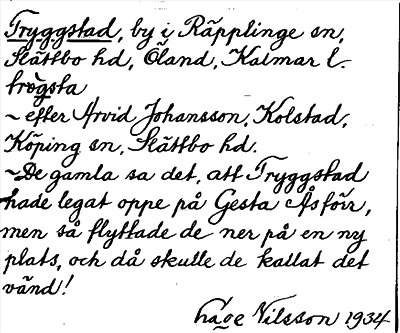 Tryggstad, by i Räpplinge sn,
Slättbo hd, Öland, Kalmar l.
trògsta
~ efter Arvid Johansson, Kolstad,
Köping sn, Slättbo hd.
~ De gamla sa det, att Tryggstad
hade legat oppe på Gesta Åsförr,
men så flyttade de ner på en ny
plats, och då skulle de kallat det
vänd!
Nilsson 1934